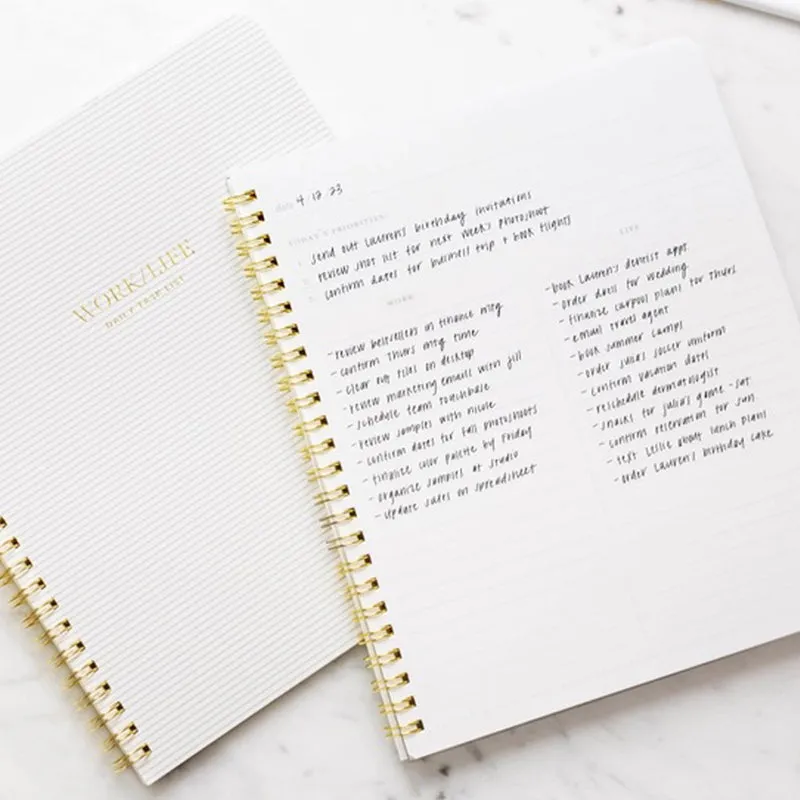 WORK/LIFE
DAILY TASK LIST
date 4.12.23
TODAY'S PRIORITIES:
1. send out Lauren's birthday invitations
2. review shot list for next week's photoshoot
3. confirm dates for business trip + book flights
WORK
- review bestsellers in finance mtg
- confirm thurs mtg time
- clear out files on desktop
- review marketing emails with jill
- schedule team touchbase
- review samples with nicole
- confirm dates for fall photoshoots
- finalize color palette by friday
- organize samples at studio
- update sales on spreadsheet
LIFE
- book Lauren's dentist appt.
- order dress for wedding
- finalize carpool plans for thurs.
- email travel agent
- book summer camps
- order julia's soccer uniform
- confirm vacation dates
- reschedule dermatologist
- snacks for julia's game - sat.
- confirm reservation for sun.
- text Leslie about lunch plans
- order Lauren's birthday cake